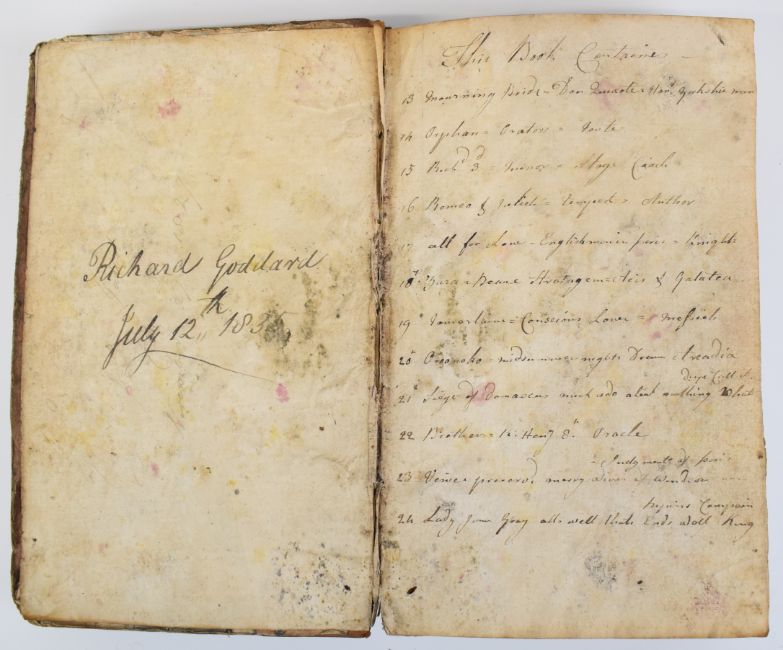 Richard Goddard
July 12th 183
This Book Contains
13 Mourning Bride = Don Quixote = Yorkshire man
14 Orphan = Orators = Taste
15 Richd 3d = Minor = Stage Coach
16 Romeo & Juliet = Tempest = Author
17 all for Love = Englishman in paris = Knights
18 Zara = Beaux Stratagem = Acis & Galatea
19 Tamerlane = Conscious Lovers = Messiah
20 Oroonoko = midsummer nights Dream Arcadia
21 Siege of Damascus much ado about nothing what
22 Brothers = K. Heny 8th Oracle
= Judgment of paris
23 Venice preservd merry wives of Windsor
24 Lady Jane Gray alls well that Ends Well King